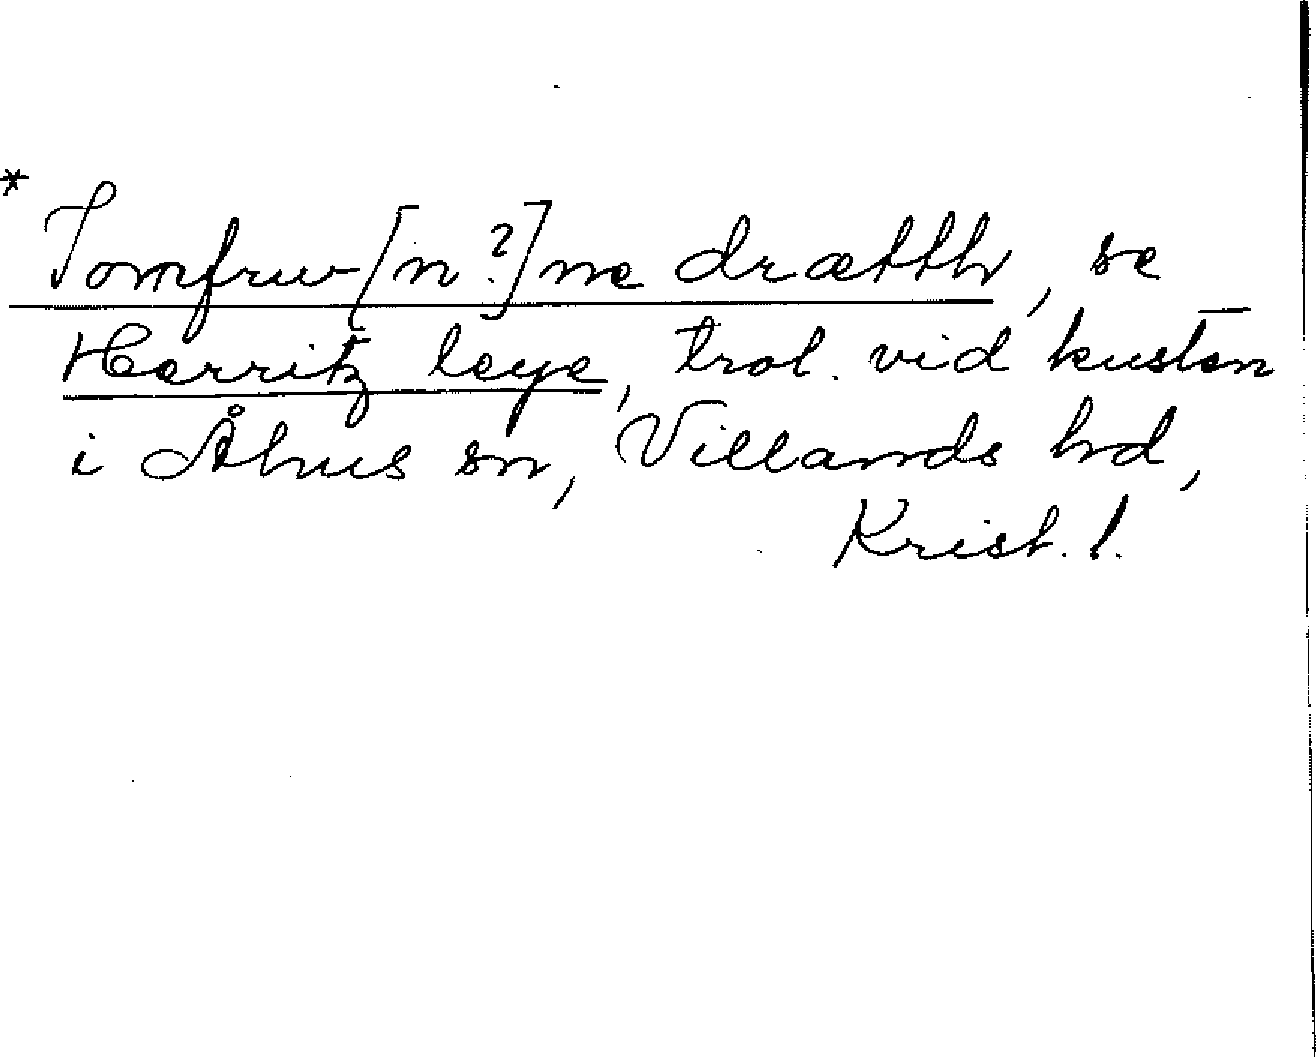 * Iomfrw[n?]ne drætth, se
Herritz leye, trol. vid kusten
i Åhus sn, Villands hd,
Krist. l.